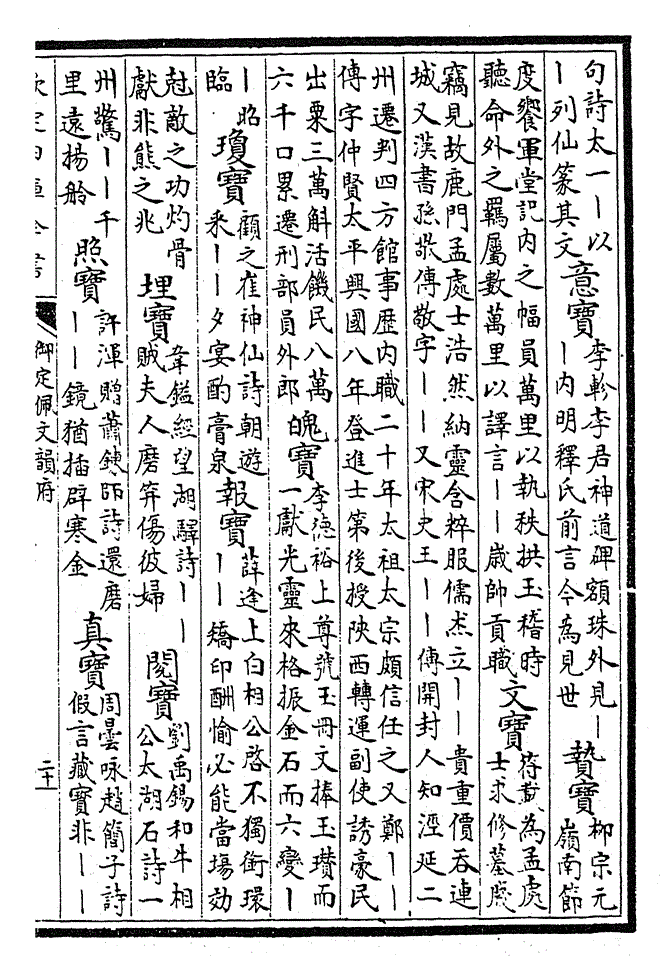 句詩太一丨以
丨列仙篆其文
意寶
李軫李君神道碑額珠外見丨
丨内明釋氏前言今為見世
贄寶
柳宗元
嶺南節
度饗軍堂記内之幅員萬里以執秩拱玉稽時
聽命外之羈屬數萬里以譯言丨丨歲帥貢職
文寶
符載為孟處
士求修墓牋
竊見故鹿門孟處士浩然納靈含粹服儒杰立丨丨貴重價吞連
城又漢書孫敬傳敬字丨丨又宋史王丨丨傳開封人知涇延二
州遷判四方館事歴内職二十年太祖太宗頗信任之又鄭丨丨
傳字仲賢太平興國八年登進士第後授陜西轉運副使誘豪民
出粟三萬斛活饑民八萬
六千口累遷刑部員外郎
魄寶
李德裕上尊號玉冊文捧玉瓚而
一獻光靈來格振金石而六變丨
丨昭
臨
瓊寶
顧之崔神仙詩朝遊
釆丨丨夕宴酌膏泉
報寶
薛逢上白相公啓不獨銜環
丨丨矯印酬愉必能當塲効
尅敵之功灼骨
獻非熊之兆
埋寶
韋鎰經望湖驛詩丨丨
賊夫人磨笄傷彼婦
閱寶
劉禹錫和牛相
公太湖石詩一
州驚丨丨千
里遠揚舲
照寶
許渾贈蕭鍊師詩還磨
丨丨鏡猶插辟寒金
真寶
周曇咏趙簡子詩
假言藏寶非丨丨
欽定四庫全書
御定佩文韻府
二十